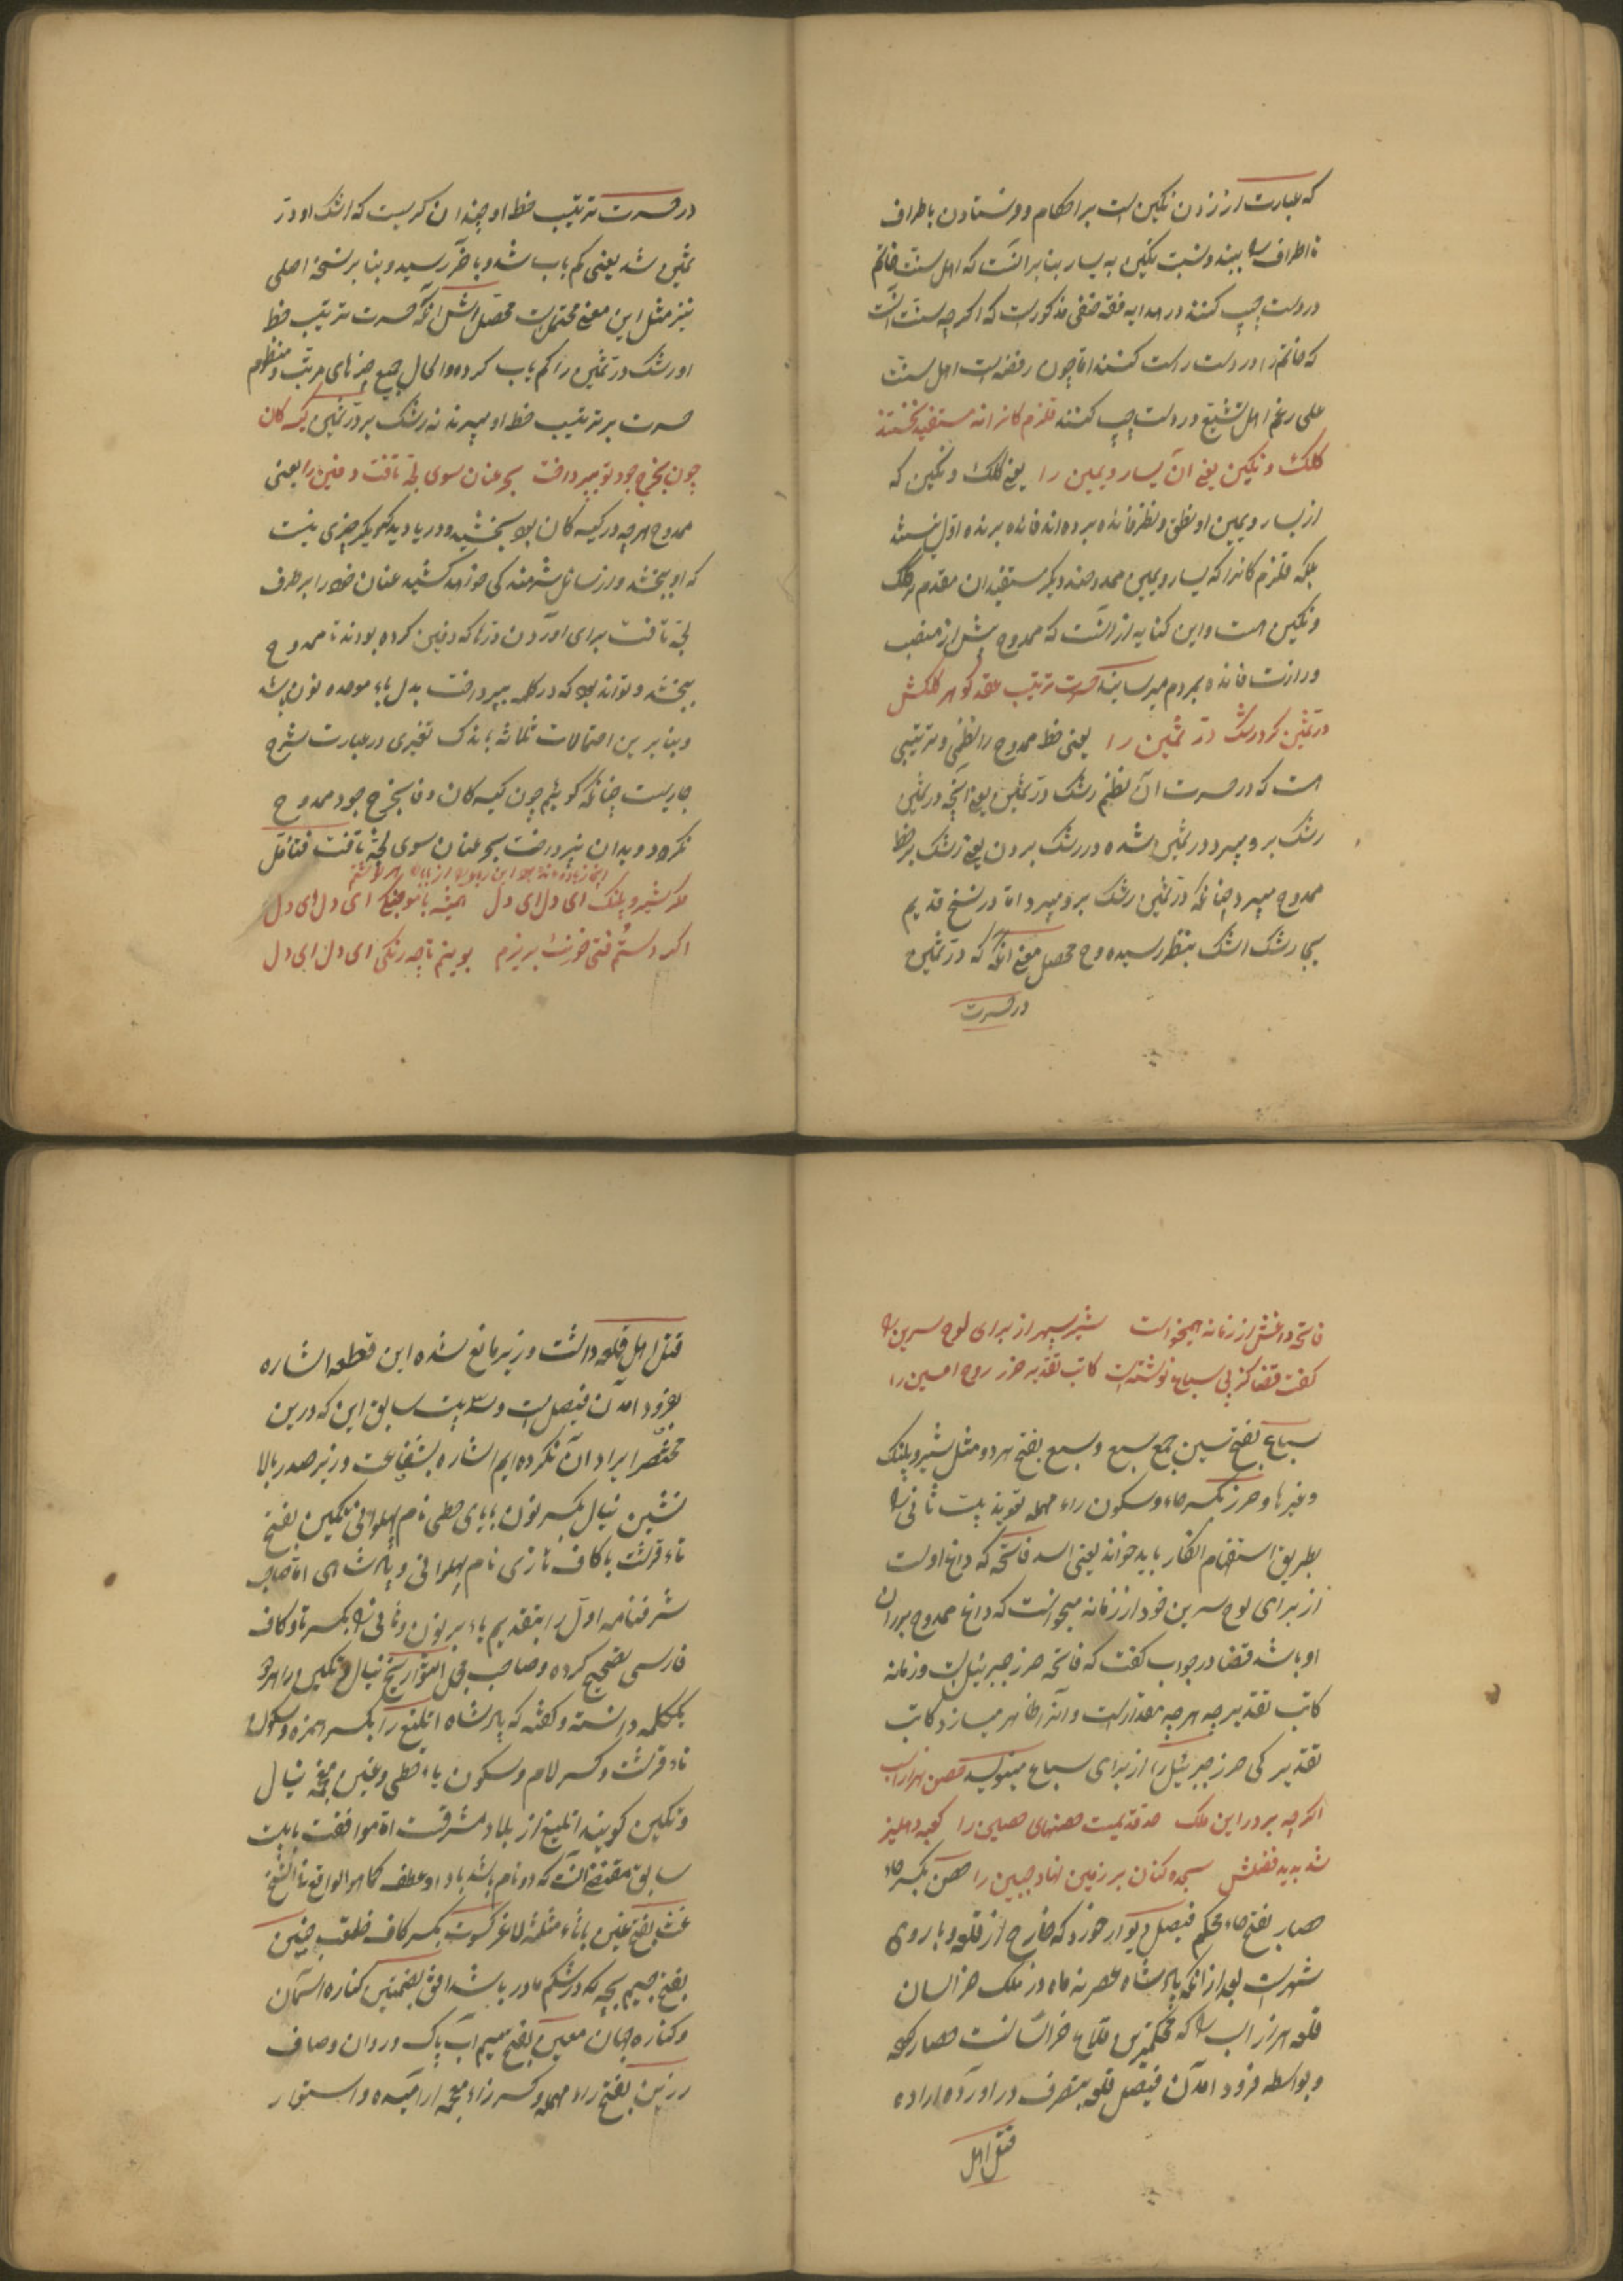 که عبارت از زدن نکین است بر احکام و فرستادن باطراف
تا اطراف را ببیند و نسبت نکین به یسار بنا بر آنست که اهل سنت خاتم
در دست چپ کنند در هدایه فقه حنفی مذکور است که اگرچه سنت آنست
که خاتم را در دست راست کنند اما چون رفضه است اهل سنت
علی رغم اهل تشیع در دست چپ کنند قلزم کانرا نه مستفید نخستند
کلک و نکین یعنی آن یسار و یمین را یعنی کلک و نکین که
از یسار و یمین او نطق و نظر فائده برده اند فائده برنده اول نیستند
بلکه قلزم کانرا که یسار و یمین ممدوحند دیگر مستفیدان مقدم بر کلک
و نکین است و این کنایه از آنست که ممدوح پیش از منصب
وزارت فائده بمردم میرسانید حسرت ترتیب عقد گوهر کلکش
در ثمین کرد رشک در ثمین را یعنی خط ممدوح را نظمی و ترتیبی
است که در حسرت آن نظم رشک در ثمین یعنی آنچه در ثمین
رشک برو میبرد در ثمین شده در رشک بردن یعنی رشک بر خط
ممدوح میبرد چنانکه در ثمین رشک برو میبرد اما در نسخ قدیم
بجا رشک اشک بنظر رسیده و ح محصل معنی آنکه که در ثمین
در حسرت
در حسرت ترتیب خط او چندان گریست که اشک او در
ثمین شد یعنی کم یاب شد و باخر رسید و بنا بر نسخه اصلی
نیز مثل این معنی محتمل است محصلش آنکه حسرت ترتیب خط
او رشک در ثمین را کم یاب کرده والحال جمیع چیزهای مرتب و منظوم
حسرت بر ترتیب خط او میبرند نه رشک بر در ثمین کیسه کان
چون بخرج جود تو بپرداخت بحر عنان سوی لجه تافت دفین را یعنی
ممدوح هرچه در کیسه کان بود بخشید و دریا دید که دیگر چیزی نیست
که او ببخشد و از سائل شرمندگی خواهد کشید عنان خود را بطرف
لجه تافت برای آوردن درها که دفین کرده بودند تا ممدوح
ببخشد و تواند بود که در کلمه بپرداخت بدل باء موحده نون باشد
و بنا برین احتمالات ثلاثه باندک تغییری در عبارت شرح
جاریست چنانکه گوئیم چون کیسه کان وفا بخرج جود ممدوح
نکرد و بدان نپرداخت بحر عنان سوی لجه تافت فتامل
مگر شیر و پلنگ ای دل ای دل همیشه با مو بجنگ ای دل ای دل
اگر دستم فتی خونت بریزم بوینم تا چه رنگی ای دل ای دل
فاتحه داغش از زمانه همیخواست شیر سپهر از برای لوح سرین را
گفت قضا کز پی سباع نوشتست کاتب تقدیر حرز روح امین را
سباع بفتح سین جمع سبع و سبع بفتح هردو مثل شیر و پلنگ
و غیرها و حرز بکسر حاء و سکون راء مهمله تعویذ بیت ثانی را
بطریق استفهام انکار باید خواند یعنی اسد فاتحه که داغ اوست
از برای لوح سرین خود از زمانه میخواست که داغ ممدوح بر ران
او باشد قضا در جواب گفت که فاتحه حرز جبرئیل است و زمانه
کاتب تقدیر چه هرچه مقدر است و آنرا ظاهر میسازد کاتب
تقدیر کی حرز جبرئیل را از برای سباع مینویسد حصن هزار اسب
اگرچه بر در این ملک صد قدمست حصنهای حصین را کعبه دهلیز
شد به پیه فضلش سجده کنان بر زمین نهاد جبین را حصن بکسر حاء
حصار بفتح حاء محکم فیصل دیوار خورد که خارج از قلعه و باروی
شهر است بعد از آنکه پادشاه عصر نه ماه در ملک خراسان
قلعه هزار اسب را که محکمترین قلاع خراسانست حصار کرد
و بواسطه فرود آمدن فیصل قلعه بتصرف در آورده اراده
قتل اهل
قتل اهل قلعه داشت وزیر مانع شده این قطعه اشاره
بفرود آمدن فیصل است و سه بیت سابق این که درین
مختصر ایراد آن نکرده ایم اشاره بشفاعت وزیر صدر بالا
نشین نیال بکسر نون با یای حطی نام پهلوانی تکین بفتح
تاء قرشت با کاف تازی نام پهلوانی و پادشاهی اما صاحب
شرفنامه اول را بتقدیم باء بر نون و ثانی را بکسر تا و کاف
فارسی تصحیح کرده و صاحب مجمل التواریخ نیال و تکین را هردو
یکلمه دانسته و گفته که پادشاه ایلیغ را بکسر همزه و سکون
تاء قرشت و کسر لام و سکون یاء حطی و غین معجمه نیال
و تکین گویند ایلیغ از بلاد مشرقست اما موافقت بابیت
سابق مقتضی آنست که دو نام باشد با واو عطف کما هو الواقع فی النسخ
غث بفتح غین با ثاء مثلثه لاغر کسوت بکسر کاف خلعت جنین
بفتح جیم بچه که در شکم مادر باشد افق بضمتین کناره آسمان
و کناره جهان معین بفتح میم آب پاک و روان و صاف
رزین بفتح راء مهمله و کسر زاء معجمه آرامیده و استوار